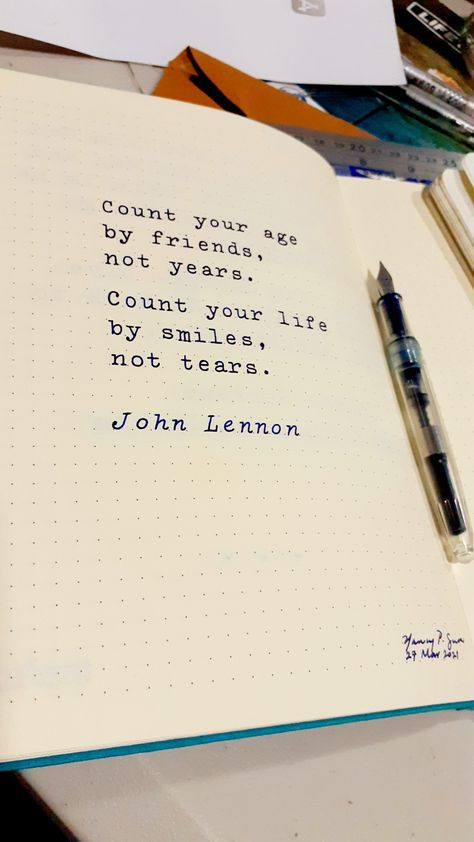 Count your age
by friends,
not years.
Count your life
by smiles,
not tears.
John Lennon
27 Mar 2021
LIFE